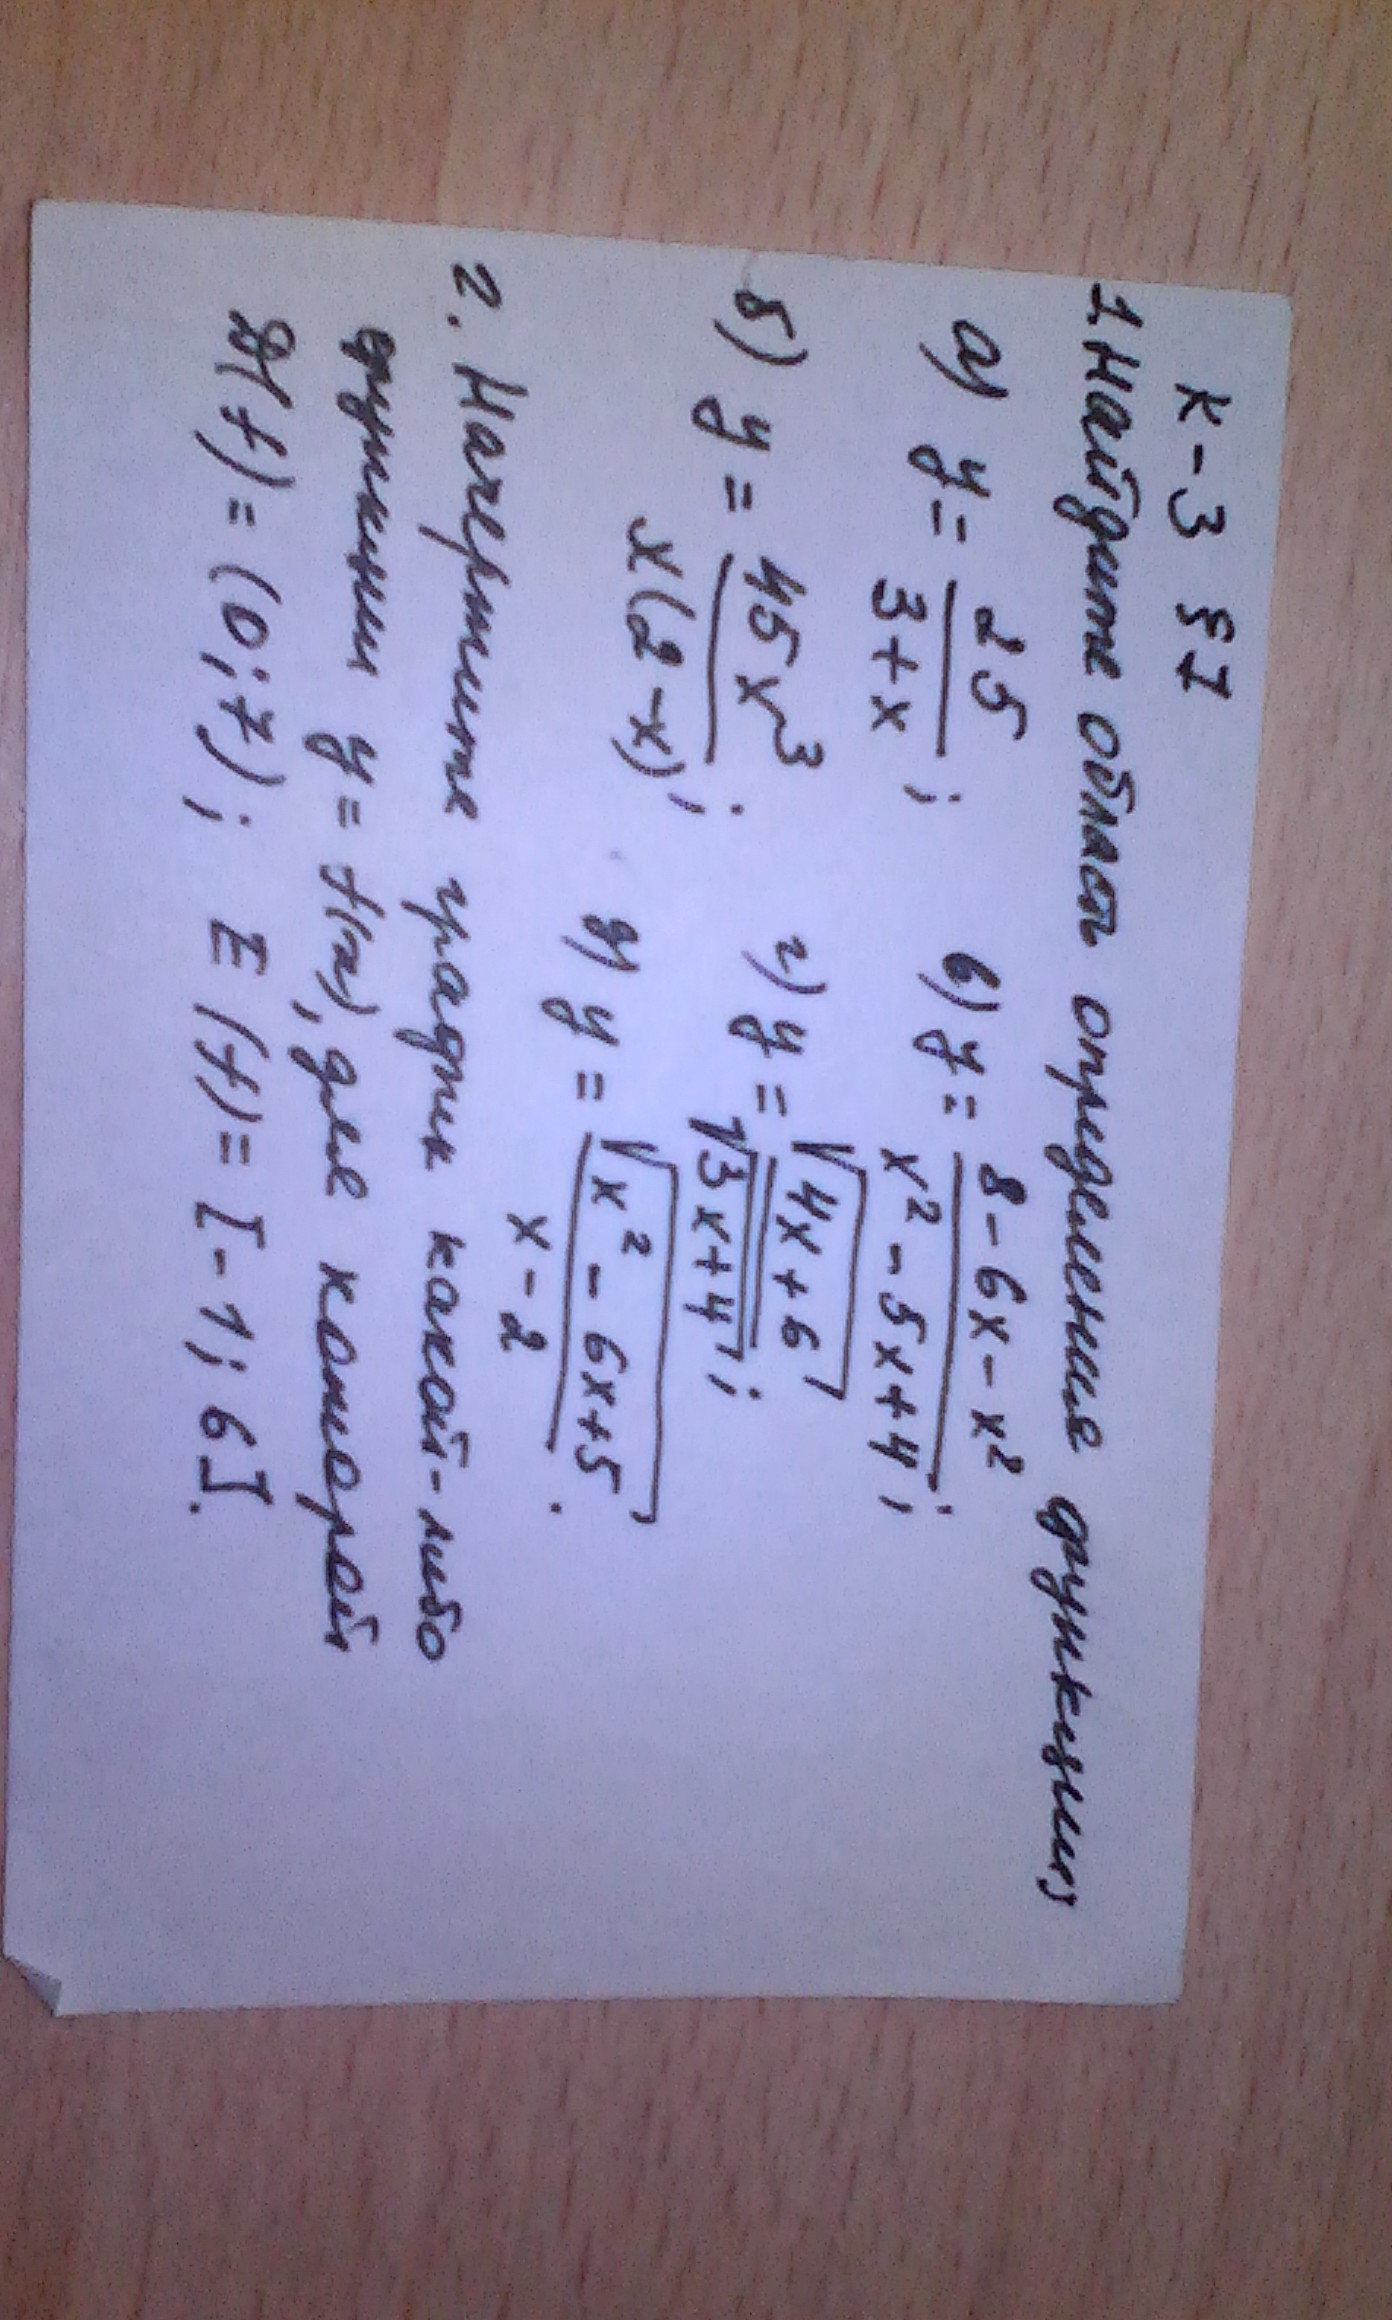 К-3 § 1
1. Найдите област определения функции
а) y = 25/(3+x);
в) y = (8-6x-x²)/(x²-5x+4);
б) y = 45x³/(x(2-x));
г) y = √(4x+6)/√(3x+4);
д) y = √(x²-6x+5)/(x-2).
2. Начертите график какой-либо
функции y = f(x), для которой
D(f) = (0; 7); E(f) = [-1; 6].